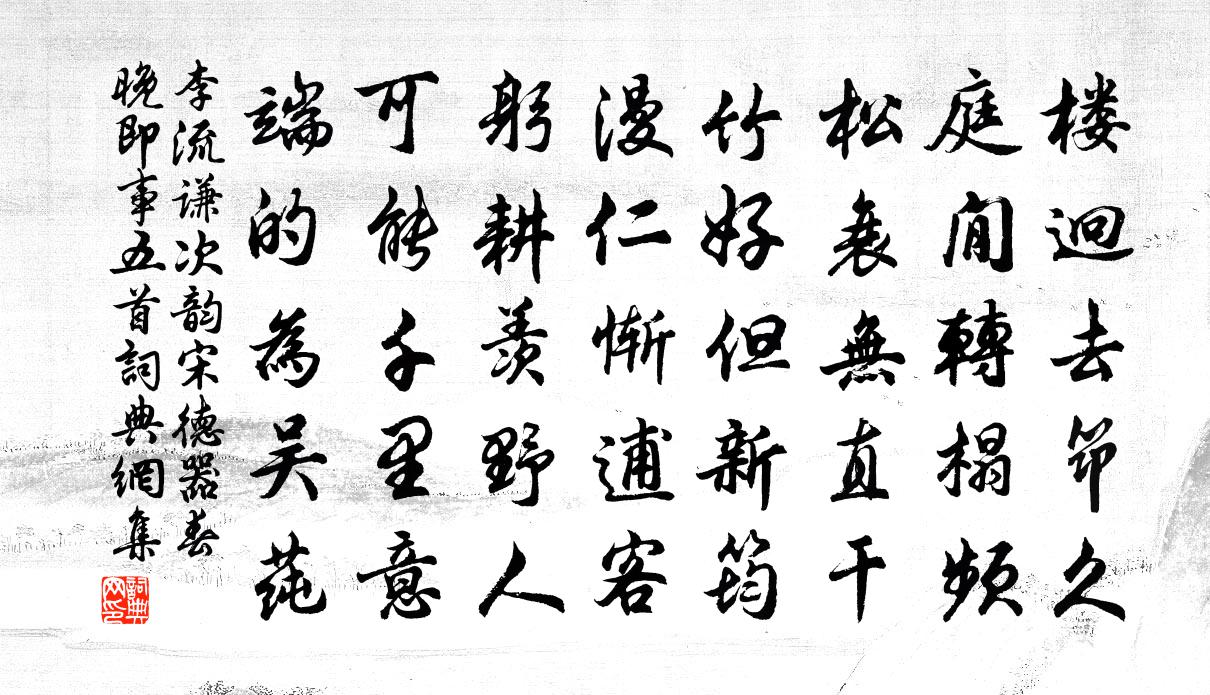 楼迥去笻久
庭閒轉榻頻
松衰無直干
竹好但新筠
漫仁慚逋客
躬耕羡野人
可能千里意
端的為吴蒓
李流谦次韵宋德器春
晚即事五首詞典網集
詞典网印